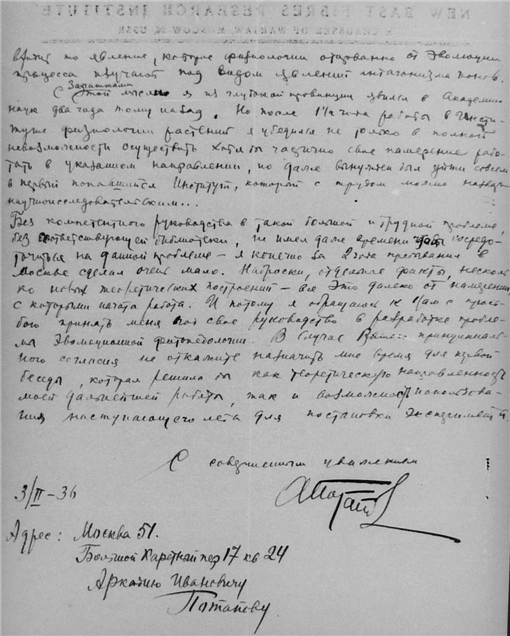 NEW BAST FIBRES RESEARCH INSTITUTE
MOSCOW, USSR
явление которое физиологи оторванно от эволюции
процесса изучают под видом явлений антагонизма ионов.
С этой мыслью я из глубокой провинции явился в Академию
Задачами
наук два года тому назад. Но после 1½ года работы в Инсти-
туте физиологии растений я убедился не только в полной
невозможности осуществить хотя бы частично свое намерение рабо-
тать в указанном направлении, но даже вынужден был уйти совсем
в первый попавшийся Институт, который с трудом можно назвать
научноисследовательским...
Без компетентного руководства в такой большой и трудной проблеме,
без соответствующей библиотеки, не имея даже времени чтобы сосредо-
точиться на данной проблеме – я конечно за 2 года пребывания в
Москве сделал очень мало. Наброски, отдельные факты, несколь
ко новых теоретических построений – все это далеко от намерений,
с которыми начата работа. И потому я обращаюсь к Вам с прось-
бою принять меня под свое руководство в разработке пробле-
мы Эволюционной В случае Вашего принципиаль-
ного согласия не откажите назначить мне время для
беседы, которая решила бы как теоретическую направленность
моей дальнейшей работы, так и возможность использова-
ния наступающего лета для постановки экспериментов.
С совершенным уважением
3/II–36
АПотапов
Адрес: Москва 51.
Большой Каретный пер 17 кв 24
Аркадию Ивановичу
Потапову